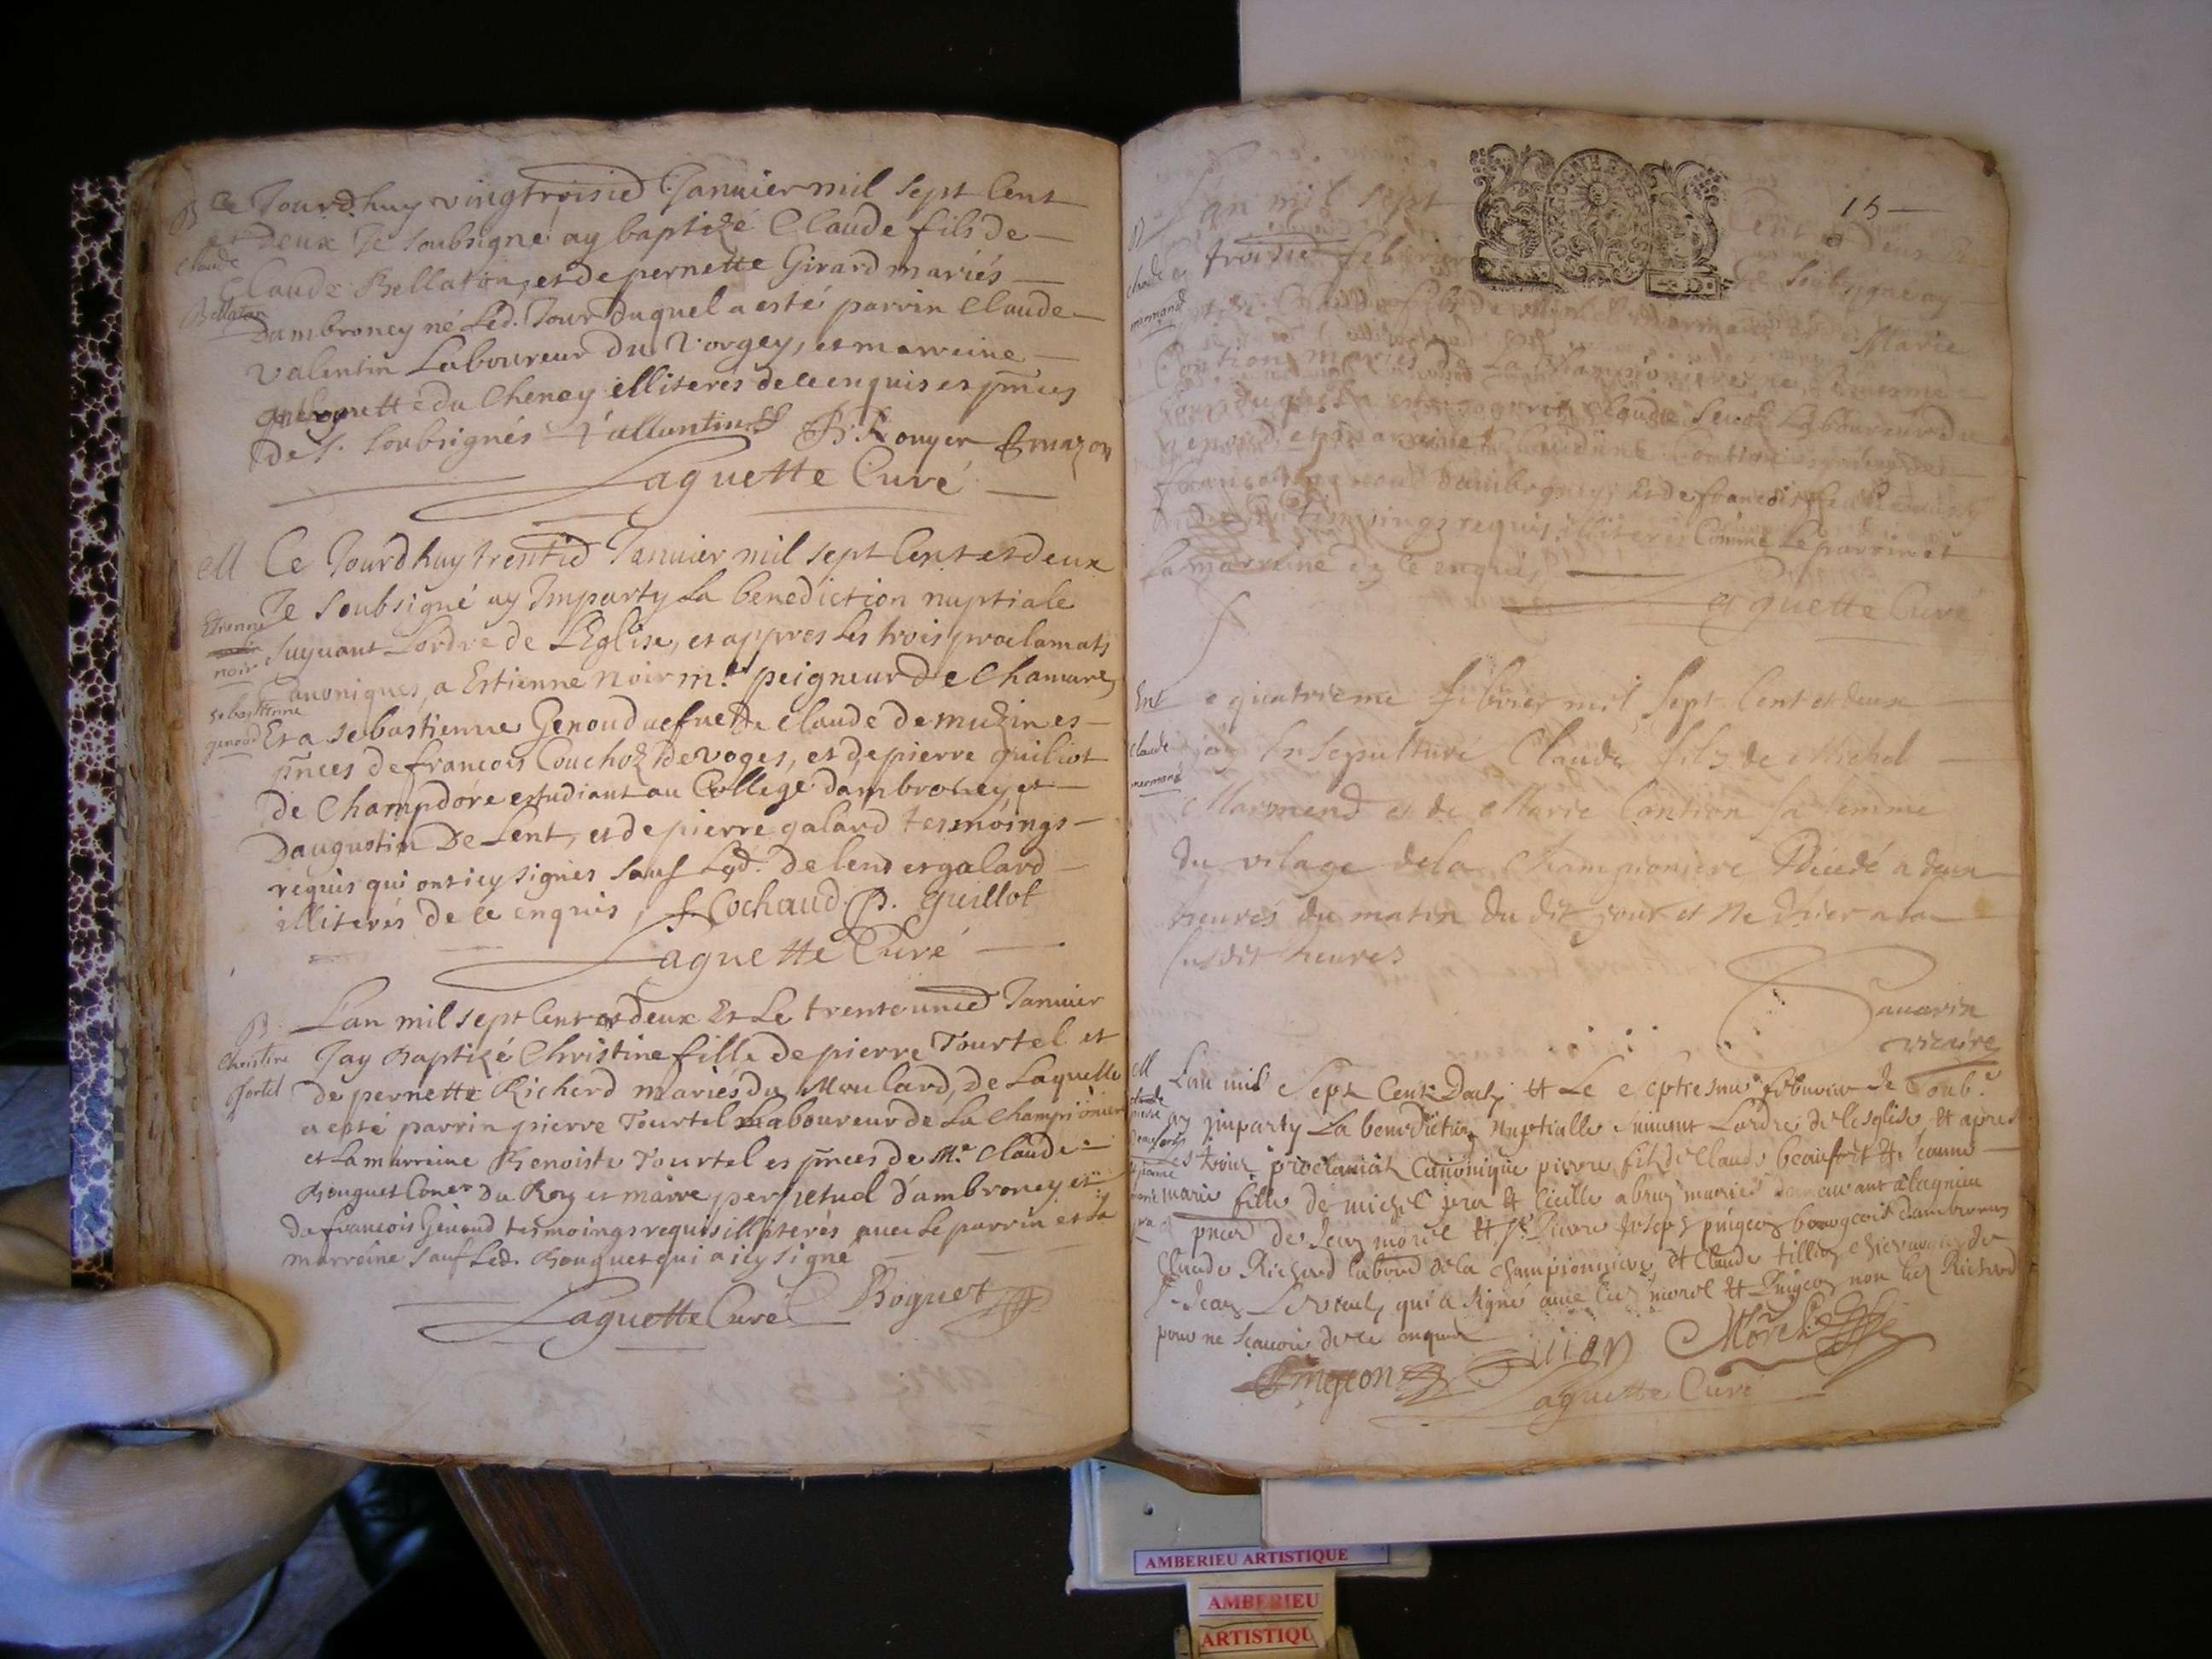 B
Claude
Bellaton
Ce Jourd'huy vingtroisie Januier mil sept Cent
et deux Je soubsigné ay baptizé Claude fils de
Claude Bellaton, et de pernette Girard mariés
Dambroney né Led. Jour duquel a esté parrin Claude
Valentin Laboureur du Vorgey, et marreine
du Cheney illiterés de ce enquis es pnces
de s. soubsignés Vallantin B. Rouyer
Laguette Curé
M
Etienne
noir
sebastienne
genoud
Ce Jourdhuy trentie Januier mil sept Cent et deux
Je Soubsigné ay Imparty La benediction nuptiale
suyuant Lordre de LEglise, et appres Les trois proclamats
Canoniques, a Estienne noir me peigneur de Chamure,
Et a sebastienne Genoud uefue de Claude demuzin es
pnces de francois Couchoz de voges, et de pierre guiliot
de Champdore estudiant au College dambroney, et
Daugustin De Lent, et de pierre galard tesmoings
requis qui ont icy signés sauf Led. de lent et galard
illiterés de ce enquis, f Cochaud. P. guillot
Laguette Curé
B
Christine
Tortel
Lan mil sept Cent et deux Et Le trente unie Januier
Jay Baptizé Christine fille de pierre Tourtel et
de pernette Richerd mariés du Moulard, de Laquelle
a esté parrin pierre Tourtel Laboureur de La Championiere
et La marreine Benoiste Tourtel es pnces de Me Claude
Bouguet Coner du Roy et maire perpetuel d'ambroney et
de francois Genoud tesmoings requis illiterés auec Le parrin et La
marreine sauf Led. Bouguet qui a icy signé
Laguette Curé Boguet
15
B
Claude
mermand
Lan mil sept Cent et Deux et
Le troisie febvrier Je Soubsigné ay
baptizé Claude fils de Michel Marmand et de Marie
Contion mariés de La Championiere né Le mesme
Jour duquel a esté parrin Claude Laboureur du
et marreine Claudine Contion
francois dambroney, Et de francois
tesmoings requis illiterés Comme Le parrin et
La marreine de ce enquis
Laguette Curé
Ent
Claude
mermand
Le quatrieme febvrier mil Sept Cent et deux
jay Ensepulturé Claude fils de Michel
Marmend et de Marie Contion sa femme
du vilage de la Championiere Décedé a deux
heures du matin du dit jour et Ne d'hier a la
susdit heures
Sauarin
vicaire
M
pierre
beaufort
et jeanne
marie
Lan mil Sept Cent Deux et Le septiesme febuvier Je Soub.e
ay imparty La benediction Nuptialle suiuant Lordre de Lesglise et apres
Les trois proclamats Canonique pierre fils de Claude beaufort et Jeanne
marie fille de michel et Cicille mariés
pnces de morel et Sr. Pierre Joseph pingeon bourgeois dambroney
Claude Richard labour de la Championniere et Claude tillion de
St Jean Le vieux qui a signé auec Les morel et Pingeon non Led Richard
pour ne scauoir de ce enquis
Pingeon Tillion Morel
Laguette Curé
AMBERIEU ARTISTIQUE
AMBERIEU
ARTISTIQU